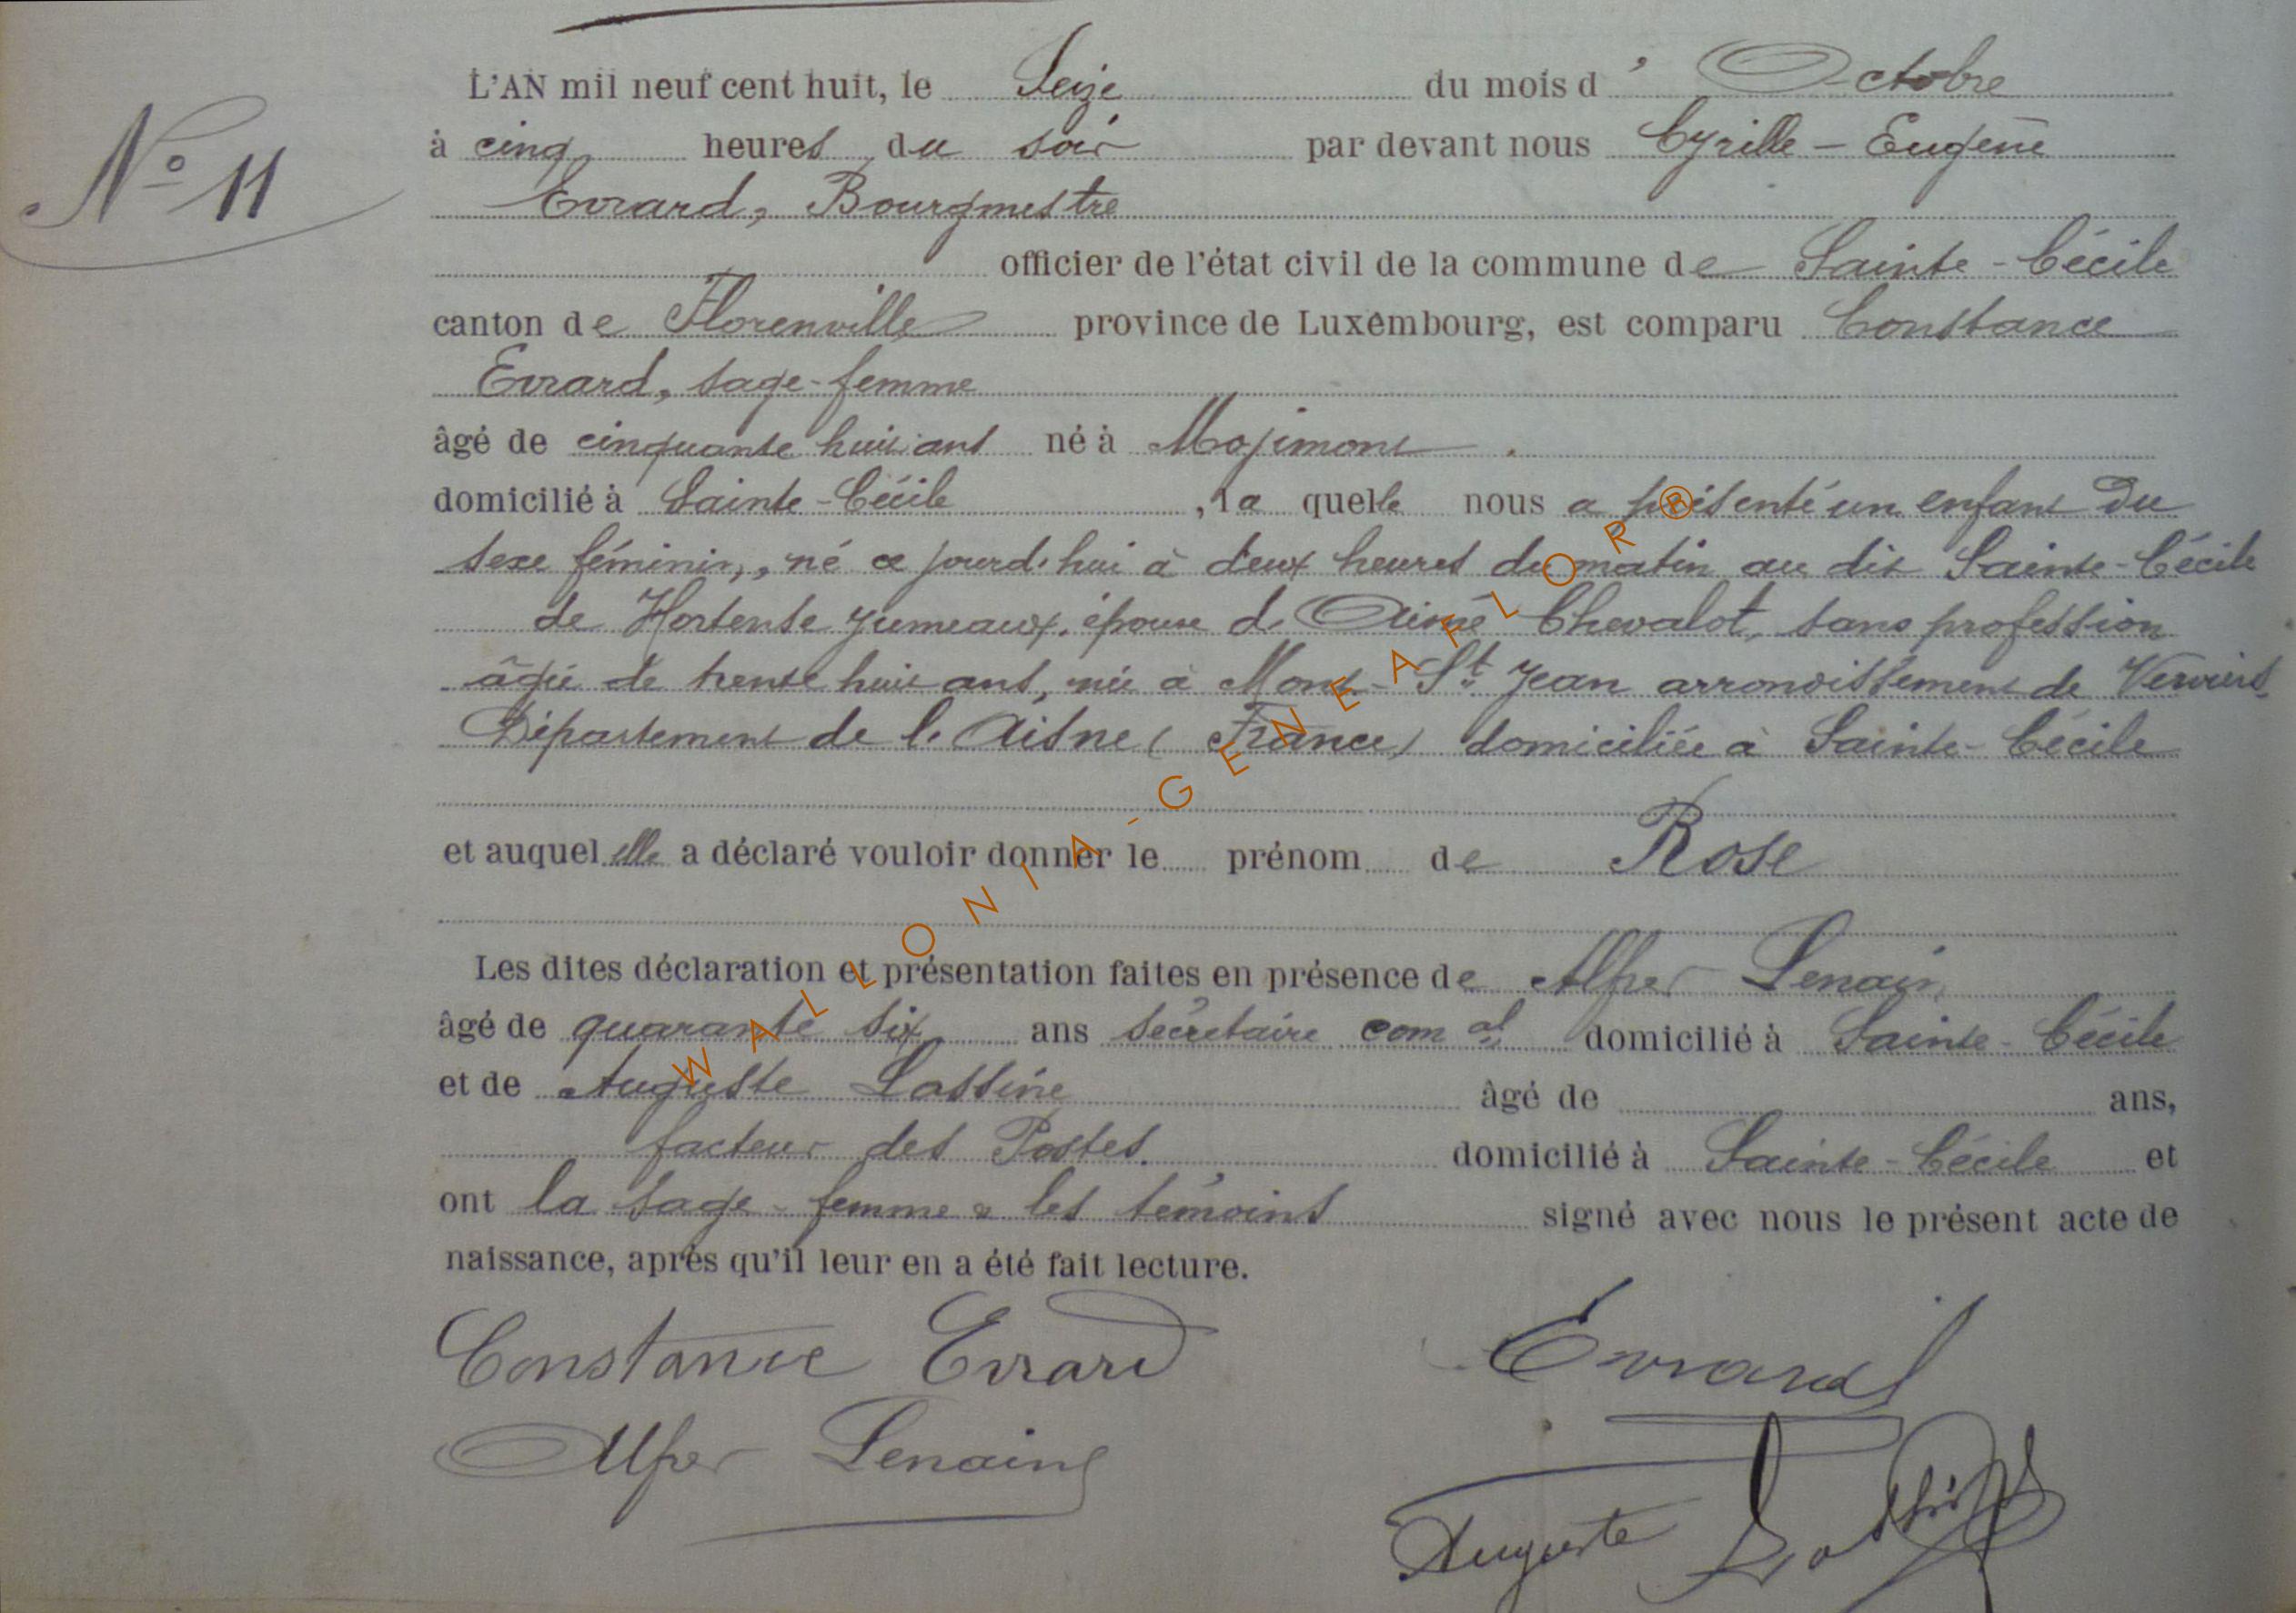 L'AN mil neuf cent huit, le Seize du mois d' Octobre
N° 11
à cinq heures du soir par devant nous Cyrille - Eugène
Evrard, Bourgmestre
officier de l'état civil de la commune de Sainte-Cécile
canton de Florenville province de Luxembourg, est comparu Constance
Evrard, sage-femme
âgé de cinquante huit ans né à Mojimont
domicilié à Sainte-Cécile, la quelle nous a présenté un enfant du
sexe féminin, né ce jourd'hui à deux heures du matin au dit Sainte-Cécile
de Hortense Jumeaux, épouse d' Aimé Chevalot, sans profession
âgée de trente huit ans, née à Mont-St Jean arrondissement de
Département de l'Aisne (France) domiciliée à Sainte-Cécile
et auquel elle a déclaré vouloir donner le prénom de Rose
Les dites déclaration et présentation faites en présence de Alfred Lenain
âgé de quarante six ans secrétaire comal domicilié à Sainte-Cécile
et de Auguste Lassine âgé de ans,
facteur des Postes. domicilié à Sainte-Cécile et
ont la sage-femme & les témoins signé avec nous le présent acte de
naissance, après qu'il leur en a été fait lecture.
Constance Evrard Evrard
Alfred Lenain
Auguste Lassine
WALLONIA-GENEAFLOR®